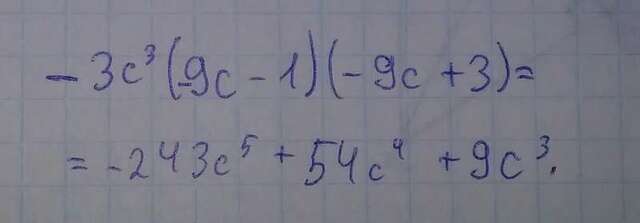 - 3c³(-9c - 1)(-9c + 3) =
= -243c⁵ + 54c⁴ + 9c³.